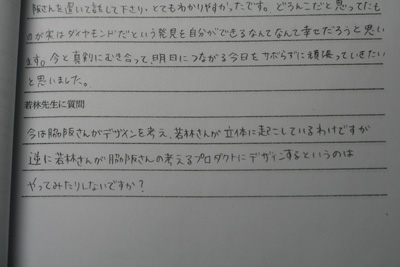 阪さんを置いて話して下さり、とてもわかりやすかったです。どろんこだと思ってたも
のが実はダイヤモンドだという発見を自分ができるなんてなんて幸せだろうと思い
ます。今と真剣にむき合って、明日につながる今日をサボらずに頑張っていきたい
と思いました。
若林先生に質問
今は脇阪さんがデザインを考え、若林さんが立体に起こしているわけですが
逆に若林さんが脇阪さんの考えるプロダクトにデザインするというのは
やってみたりしないですか？